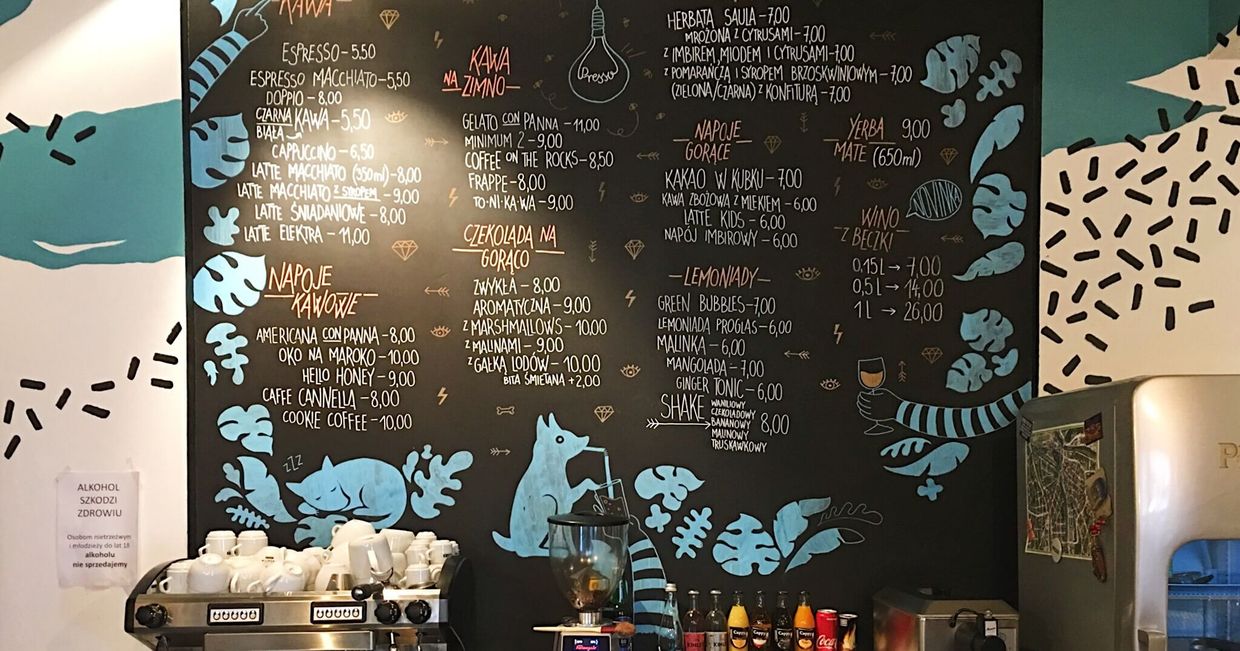 KAWA
ESPRESSO – 5,50
ESPRESSO MACCHIATO – 5,50
DOPPIO – 8,00
CZARNA KAWA – 5,50
BIAŁA
CAPPUCCINO – 6,50
LATTE MACCHIATO (350ml) – 8,00
LATTE MACCHIATO Z SYROPEM – 9,00
LATTE ŚNIADANIOWE – 8,00
LATTE ELEKTRA – 11,00
NAPOJE
KAWOWE
AMERICANA CON PANNA – 8,00
OKO NA MAROKO – 10,00
HELLO HONEY – 9,00
CAFFE CANNELLA – 8,00
COOKIE COFFEE – 10,00
KAWA
NA ZIMNO
GELATO CON PANNA – 11,00
MINIMUM 2 – 9,00
COFFEE ON THE ROCKS – 8,50
FRAPPE – 8,00
TO-NI-KA-WA – 9,00
CZEKOLADA NA
GORĄCO
ZWYKŁA – 8,00
AROMATYCZNA – 9,00
Z MARSHMALLOWS – 10,00
Z MALINAMI – 9,00
Z GAŁKĄ LODÓW – 10,00
BITA ŚMIETANA +2,00
Presso
HERBATA SAULA – 7,00
MROŻONA Z CYTRUSAMI – 7,00
Z IMBIREM, MIODEM I CYTRUSAMI – 7,00
Z POMARAŃCZĄ I SYROPEM BRZOSKWINIOWYM – 7,00
(ZIELONA/CZARNA) Z KONFITURĄ – 7,00
NAPOJE
GORĄCE
KAKAO W KUBKU – 7,00
KAWA ZBOŻOWA Z MLEKIEM – 6,00
LATTE KIDS – 6,00
NAPÓJ IMBIROWY – 6,00
LEMONIADY
GREEN BUBBLES – 7,00
LEMONIADA PROGLAS – 6,00
MALINKA – 6,00
MANGOLADA – 7,00
GINGER TONIC – 6,00
SHAKE 8,00
WANILIOWY
CZEKOLADOWY
BANANOWY
MALINOWY
TRUSKAWKOWY
YERBA 9,00
MATE (650ml)
NOWINKA
WINO
Z BECZKI
0,15L → 7,00
0,5L → 14,00
1L → 26,00
zzz
ALKOHOL
SZKODZI
ZDROWIU
Osobom nietrzeźwym
i młodzieży do lat 18
alkoholu
nie sprzedajemy
Cappy
Cappy
Coca